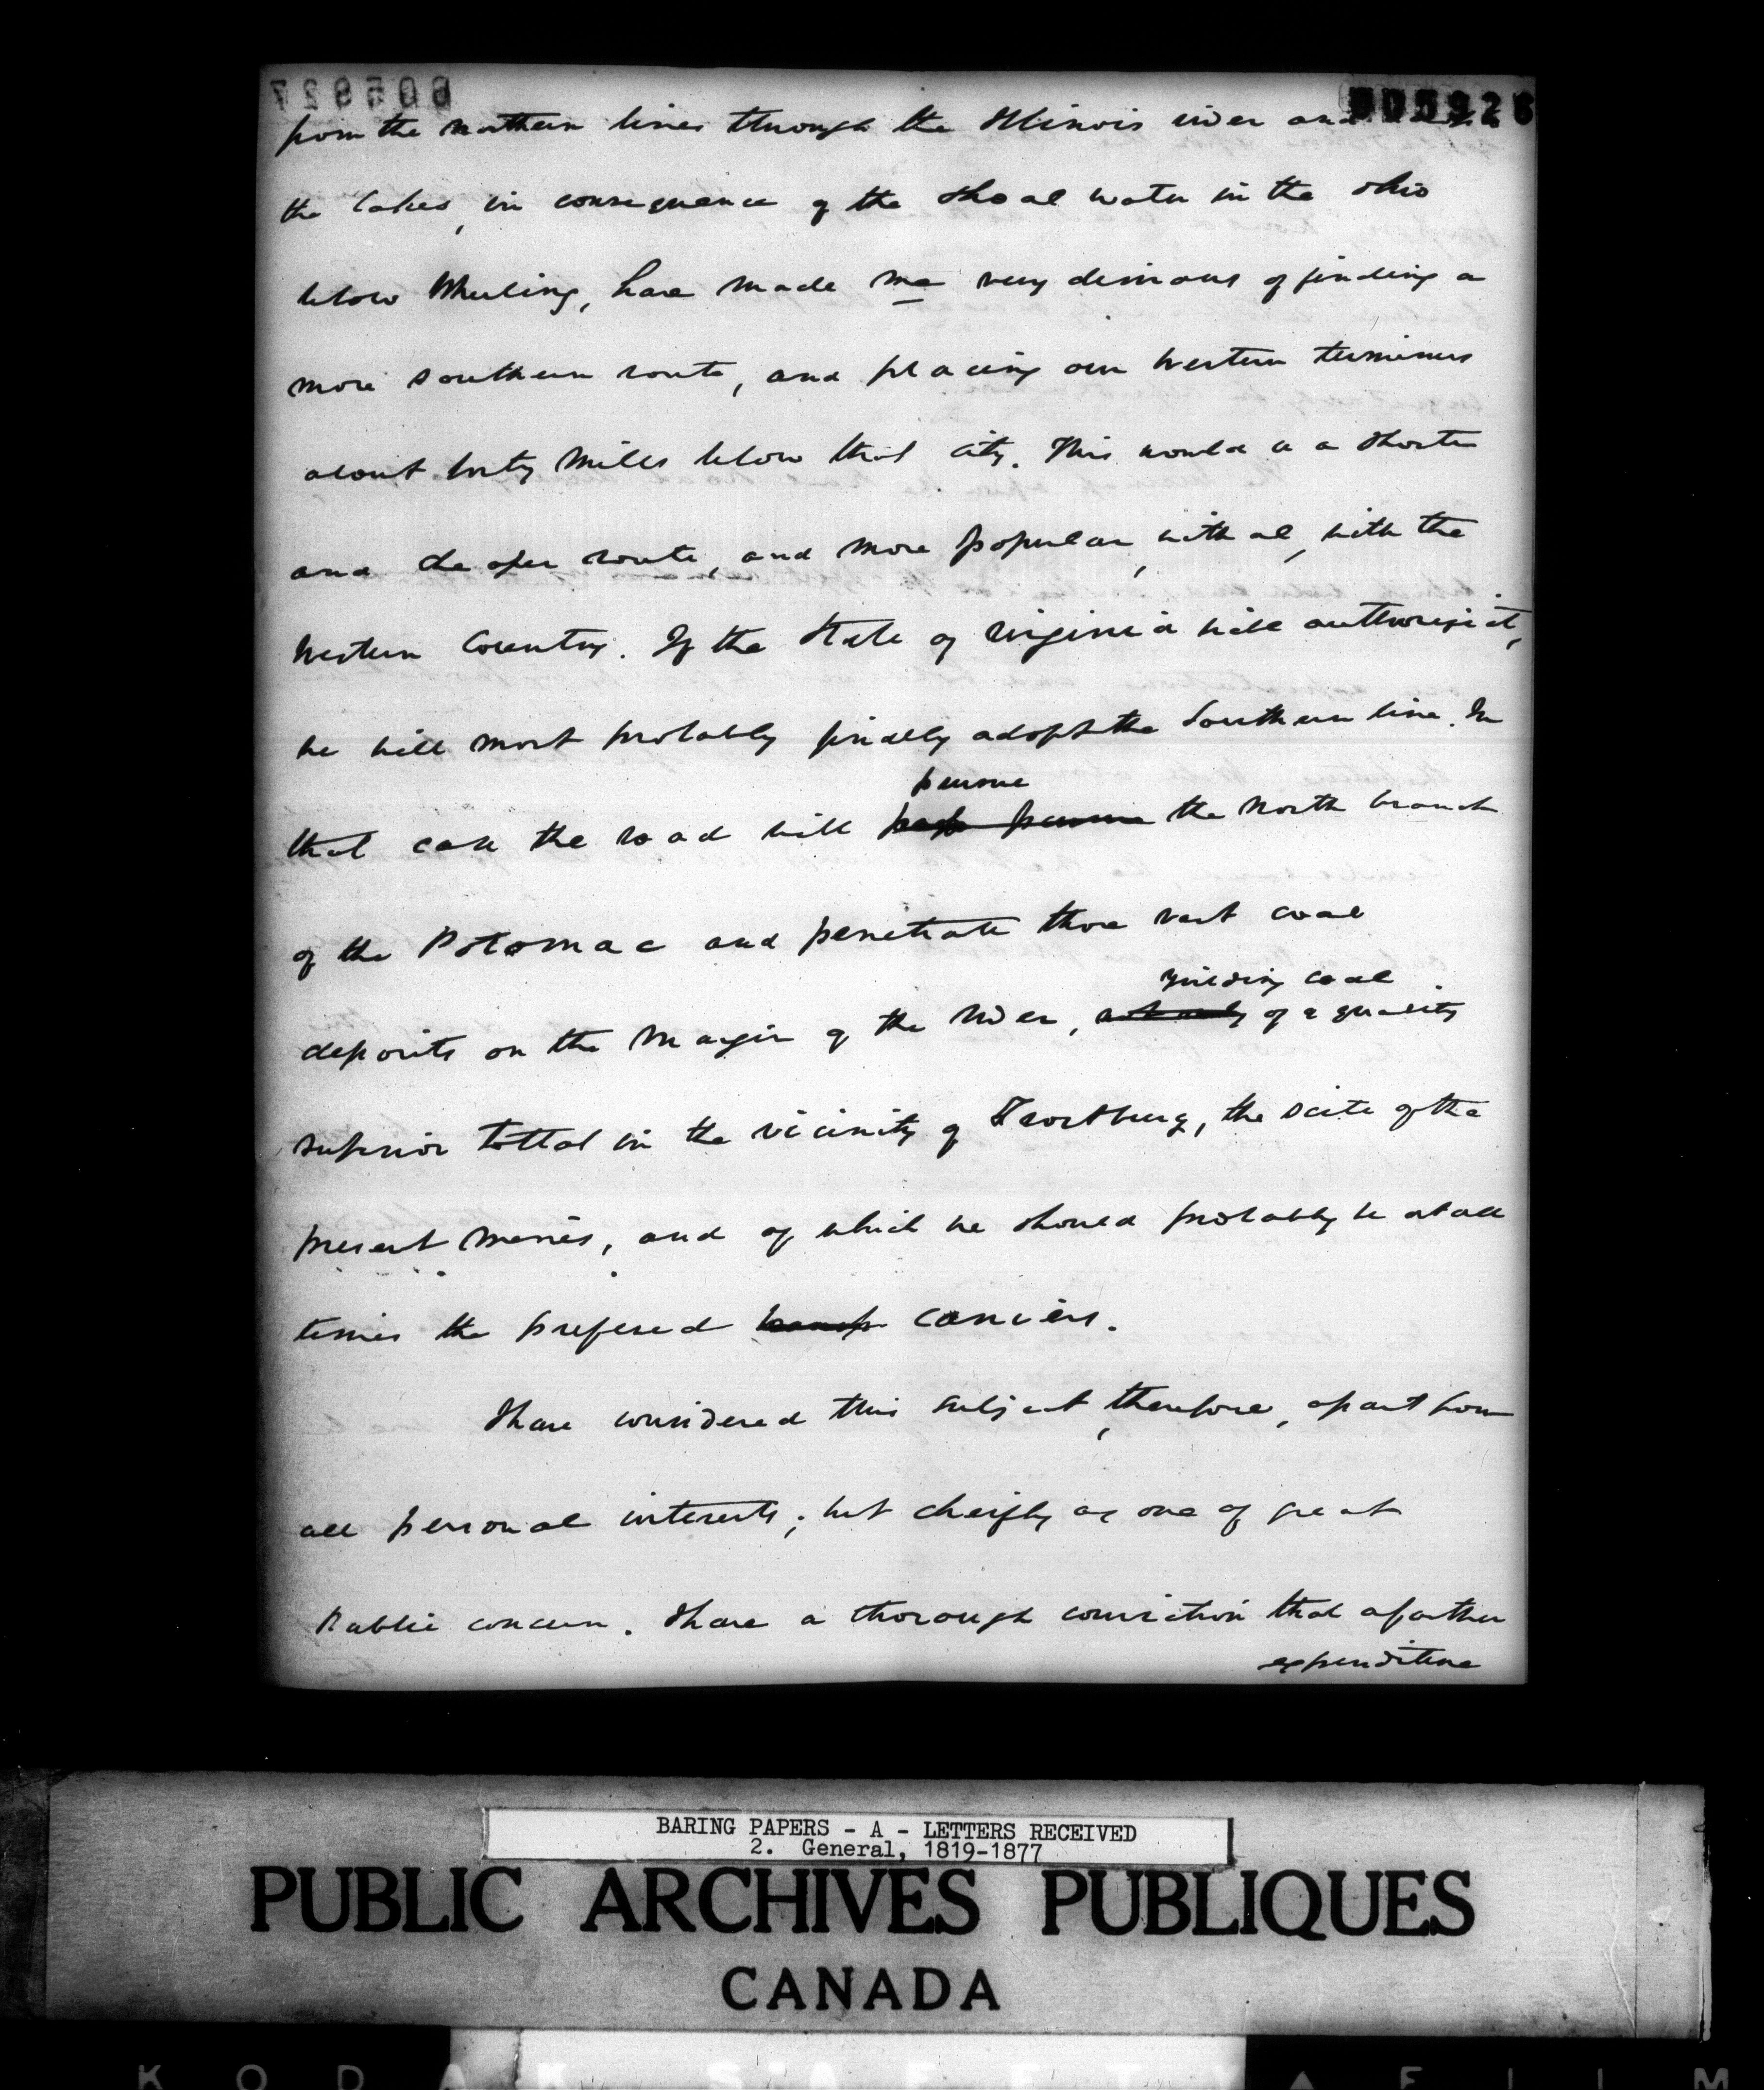 005927
005926
from the northern lines through the Illinois river and
the lakes, in consequence of the shoal water in the Ohio
below Wheeling, have made me very desirous of finding a
more southern route, and placing our Western terminus
about forty miles below that city. This would be a shorter
and cheaper route, and more popular, withal, with the
Western Country. If the State of Virginia will authorize it,
we will most probably finally adopt the Southern line. In
pursue
that case the road will pursue the North branch
of the Potomac and penetrate those vast coal
yielding coal
deposits on the margin of the River, of a quality
superior to that in the vicinity of Frostburg, the scite of the
present mines, and of which we should probably be at all
times the prefered carriers.
I have considered this subject, therefore, apart from
all personal interests; but cheifly as one of great
Public concern. I have a thorough conviction that a further
expenditure
BARING PAPERS - A - LETTERS RECEIVED
2. General, 1819-1877
PUBLIC ARCHIVES PUBLIQUES
CANADA
KODAK SAFETY FILM